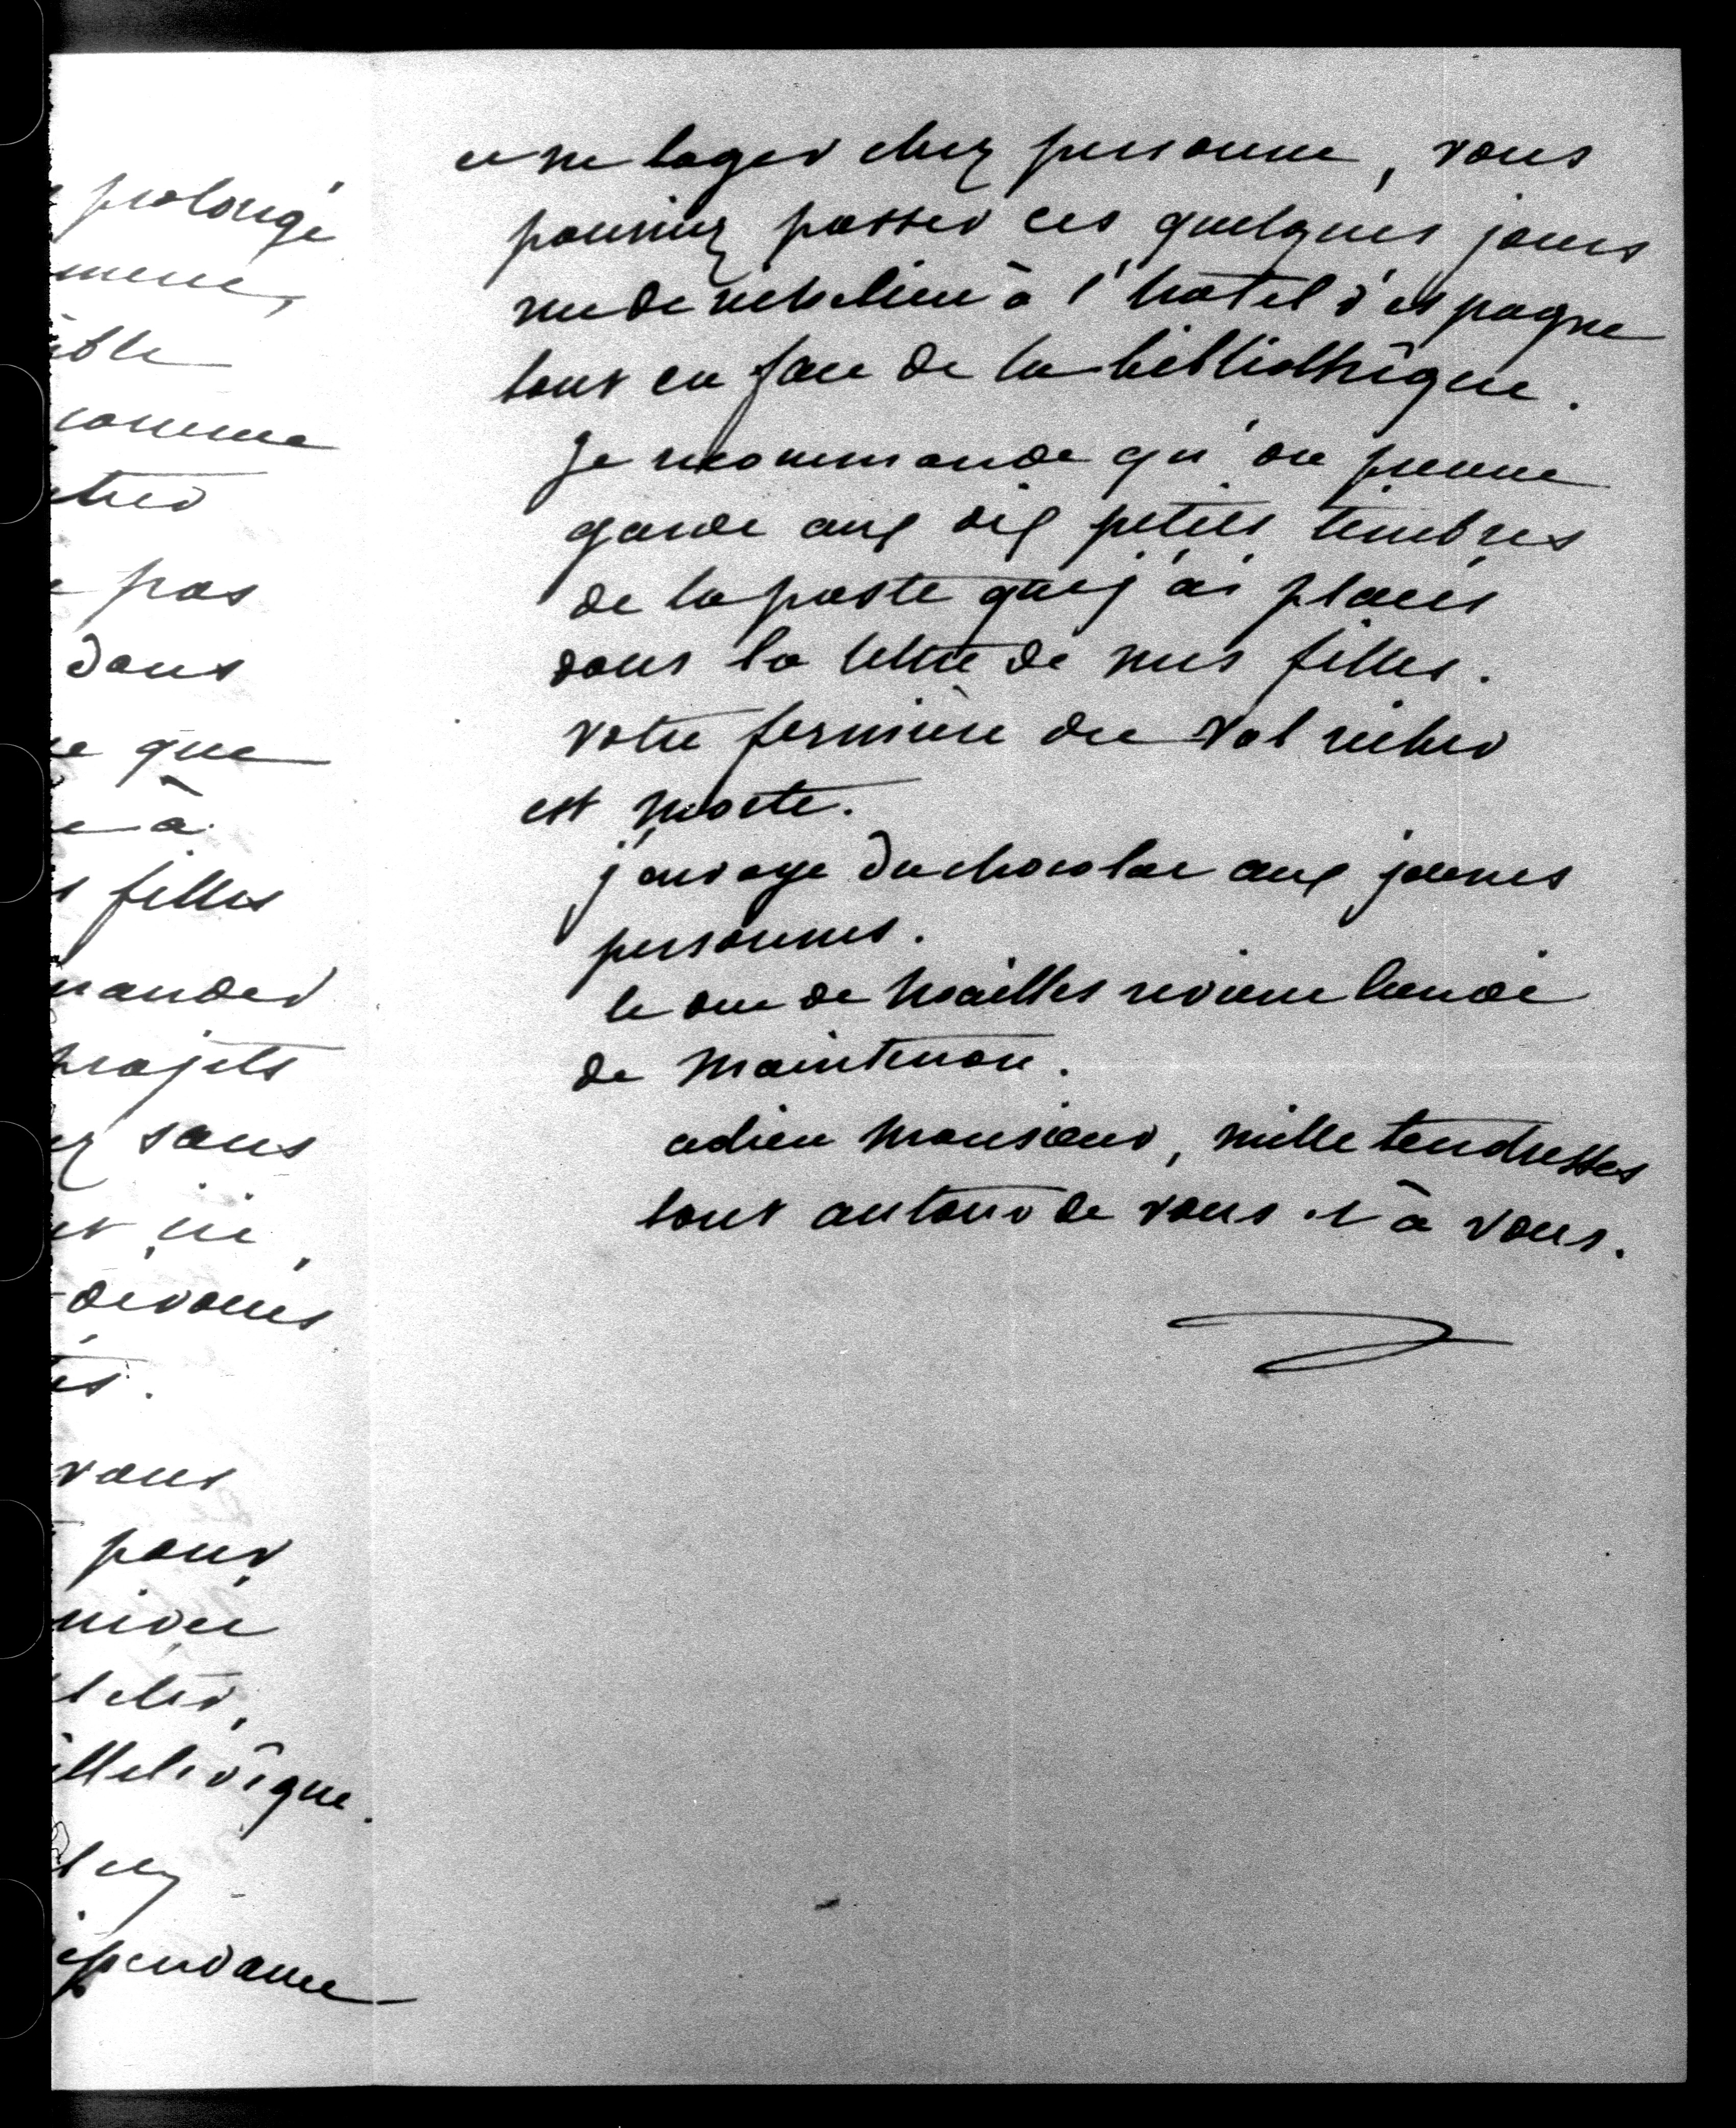 prolongé
ible
comme
pas
dans
que
à
filles
mander
projets
sans
ici,
dévoués
vous
pour
et ne loger chez personne, vous
pourriez passer ces quelques jours
rue de richelieu à l'hôtel d'espagne
tout en face de la bibliothèque.
Je recommande qu'on prenne
garde aux dix petits timbres
de la poste que j'ai placés
dans la lettre de mes filles.
votre fermière du Val richer
est morte.
j'envoye du chocolat aux jeunes
personnes.
le duc de Noailles revient lundi
de Maintenon.
adieu Monsieur, mille tendresses
tout autour de vous et à vous.